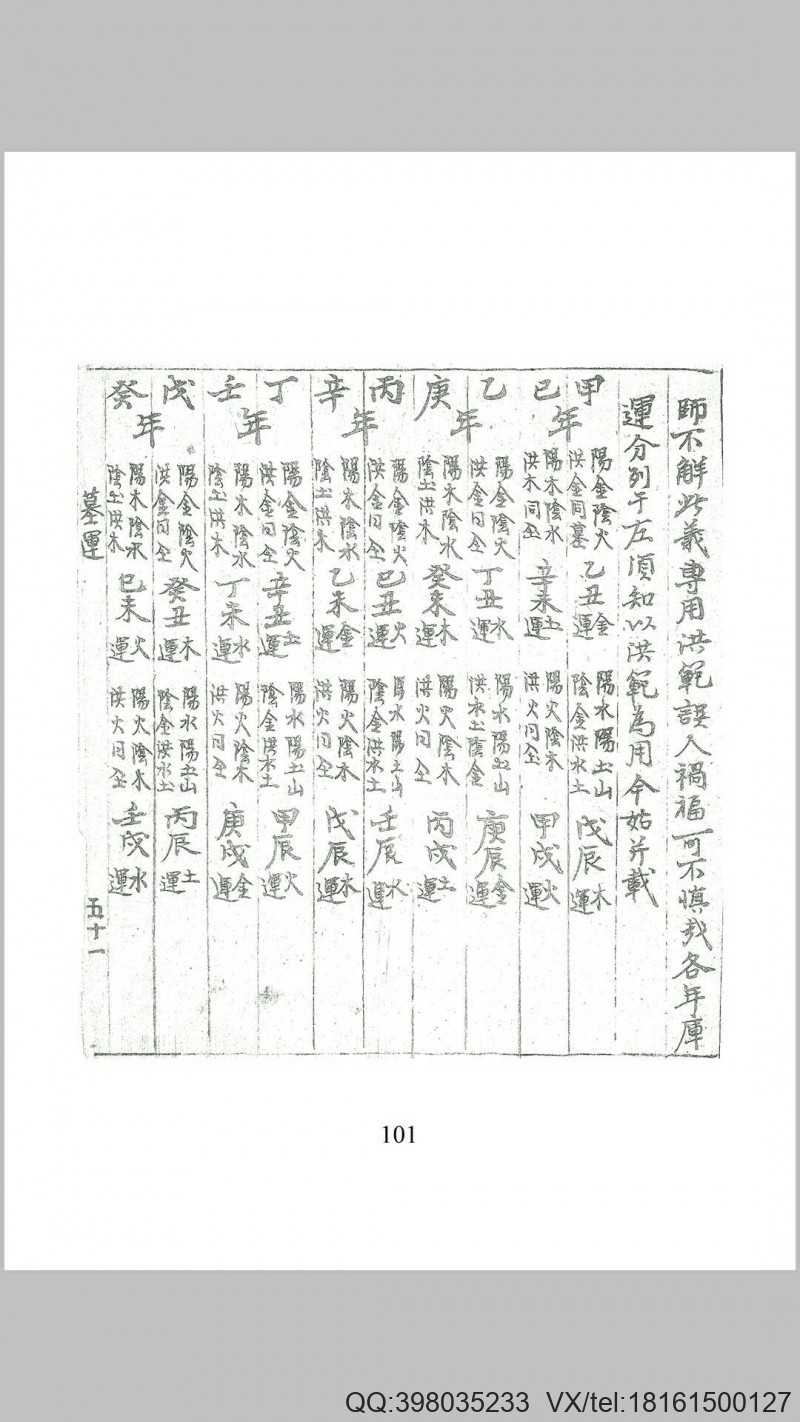 師不解此義專用洪範誤人禍福可不慎哉各年庫
運分列于左須知以洪範為用今姑并載
甲巳年
陽金陰火
洪金同墓
乙丑金運
陽水陽土山
陰金洪水土
戊辰木運
陽木陰水
洪木同仝
辛未土運
陽火陰木
洪火同仝
甲戌火運
乙庚年
陽金陰火
洪金同仝
丁丑水運
陽水陽土山
洪水土陰金
庚辰金運
陽木陰水
陰土洪木
癸未木運
陽火陰木
洪火同仝
丙戌土運
丙辛年
陽金陰火
洪金同仝
巳丑火運
陽水陽土山
陰金洪水土
壬辰水運
陽木陰水
陰土洪木
乙未金運
陽火陰木
洪火同仝
戊辰木運
丁壬年
陽金陰火
洪金同仝
辛丑土運
陽水陽土山
陰金洪水土
甲辰火運
陽木陰水
陰土洪木
丁未水運
陽火陰木
洪火同仝
庚戌金運
戊癸年
陽金陰火
洪金同仝
癸丑木運
陽水陽土山
陰金洪水土
丙辰土運
陽木陰水
陰土洪木
巳未火運
陽火陰木
洪火同仝
壬戌水運
墓運
五十一
101
QQ:398035233 VX/tel:18161500127